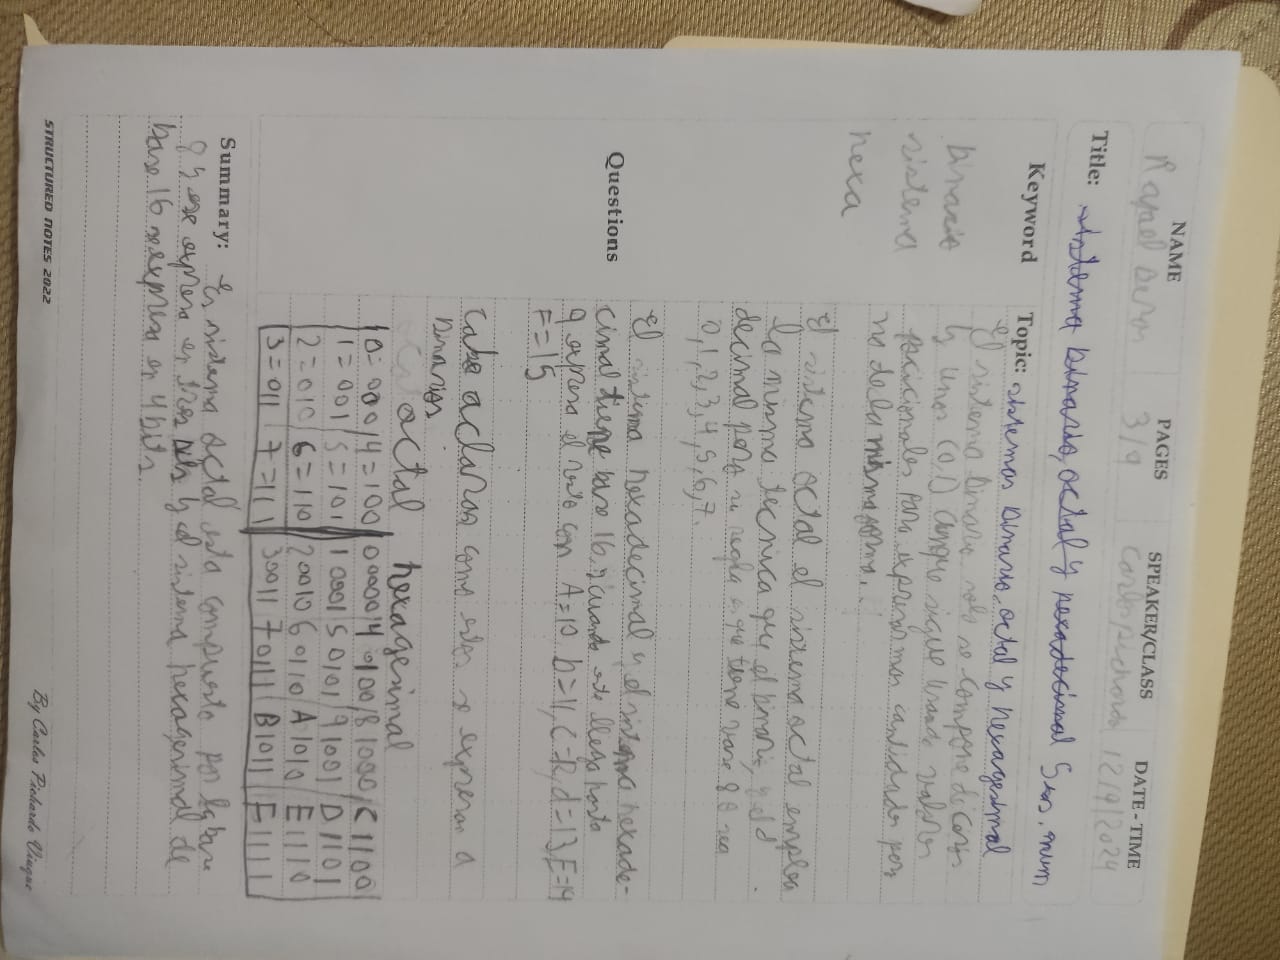 NAME PAGES SPEAKER/CLASS DATE - TIME
Rafael 3/9 Carlos pichardo 12/9/2024
Title: sistema binario, octal y hexadecimal Sus. num
Keyword Topic: sistemas binario octal y hexagesimal
El sistema binario solo se compone di ceros
binario y unos (0,1) aunque sigue usando valores
sistema posicionales para expresar mas cantidades por
hexa no de la misma forma.
El sistema octal el sistema octal emplea
la misma tecnica que el binario, y el d
decimal pero su regla es que tiene base 8 o sea
0,1,2,3,4,5,6,7.
Questions El sistema hexadecimal y el sistema hexade-
cimal tiene base 16, y cuando este llega hasta
9 expresa el resto con A=10 b=11, C=12, d=13, E=14
F=15
cabe aclarar como estos se expresan a
binarios
octal hexagesimal
0=000/4=100 00000 4 0100/8 1000/C 1100
1=001/5=101 1 0001 5 0101/9 1001/D 1101
2=010/6=110 2 0010 6 0110/A 1010/E 1110
3=011/7=111 3 0011 7 0111 B 1011 F 1111
Summary: El sistema octal esta compuesto por la base
8 y se expresa en tres bits y el sistema hexagesimal de
base 16 se expresa en 4 bits.
STRUCTURED NOTES 2022 By Carlos Pichardo Viuque